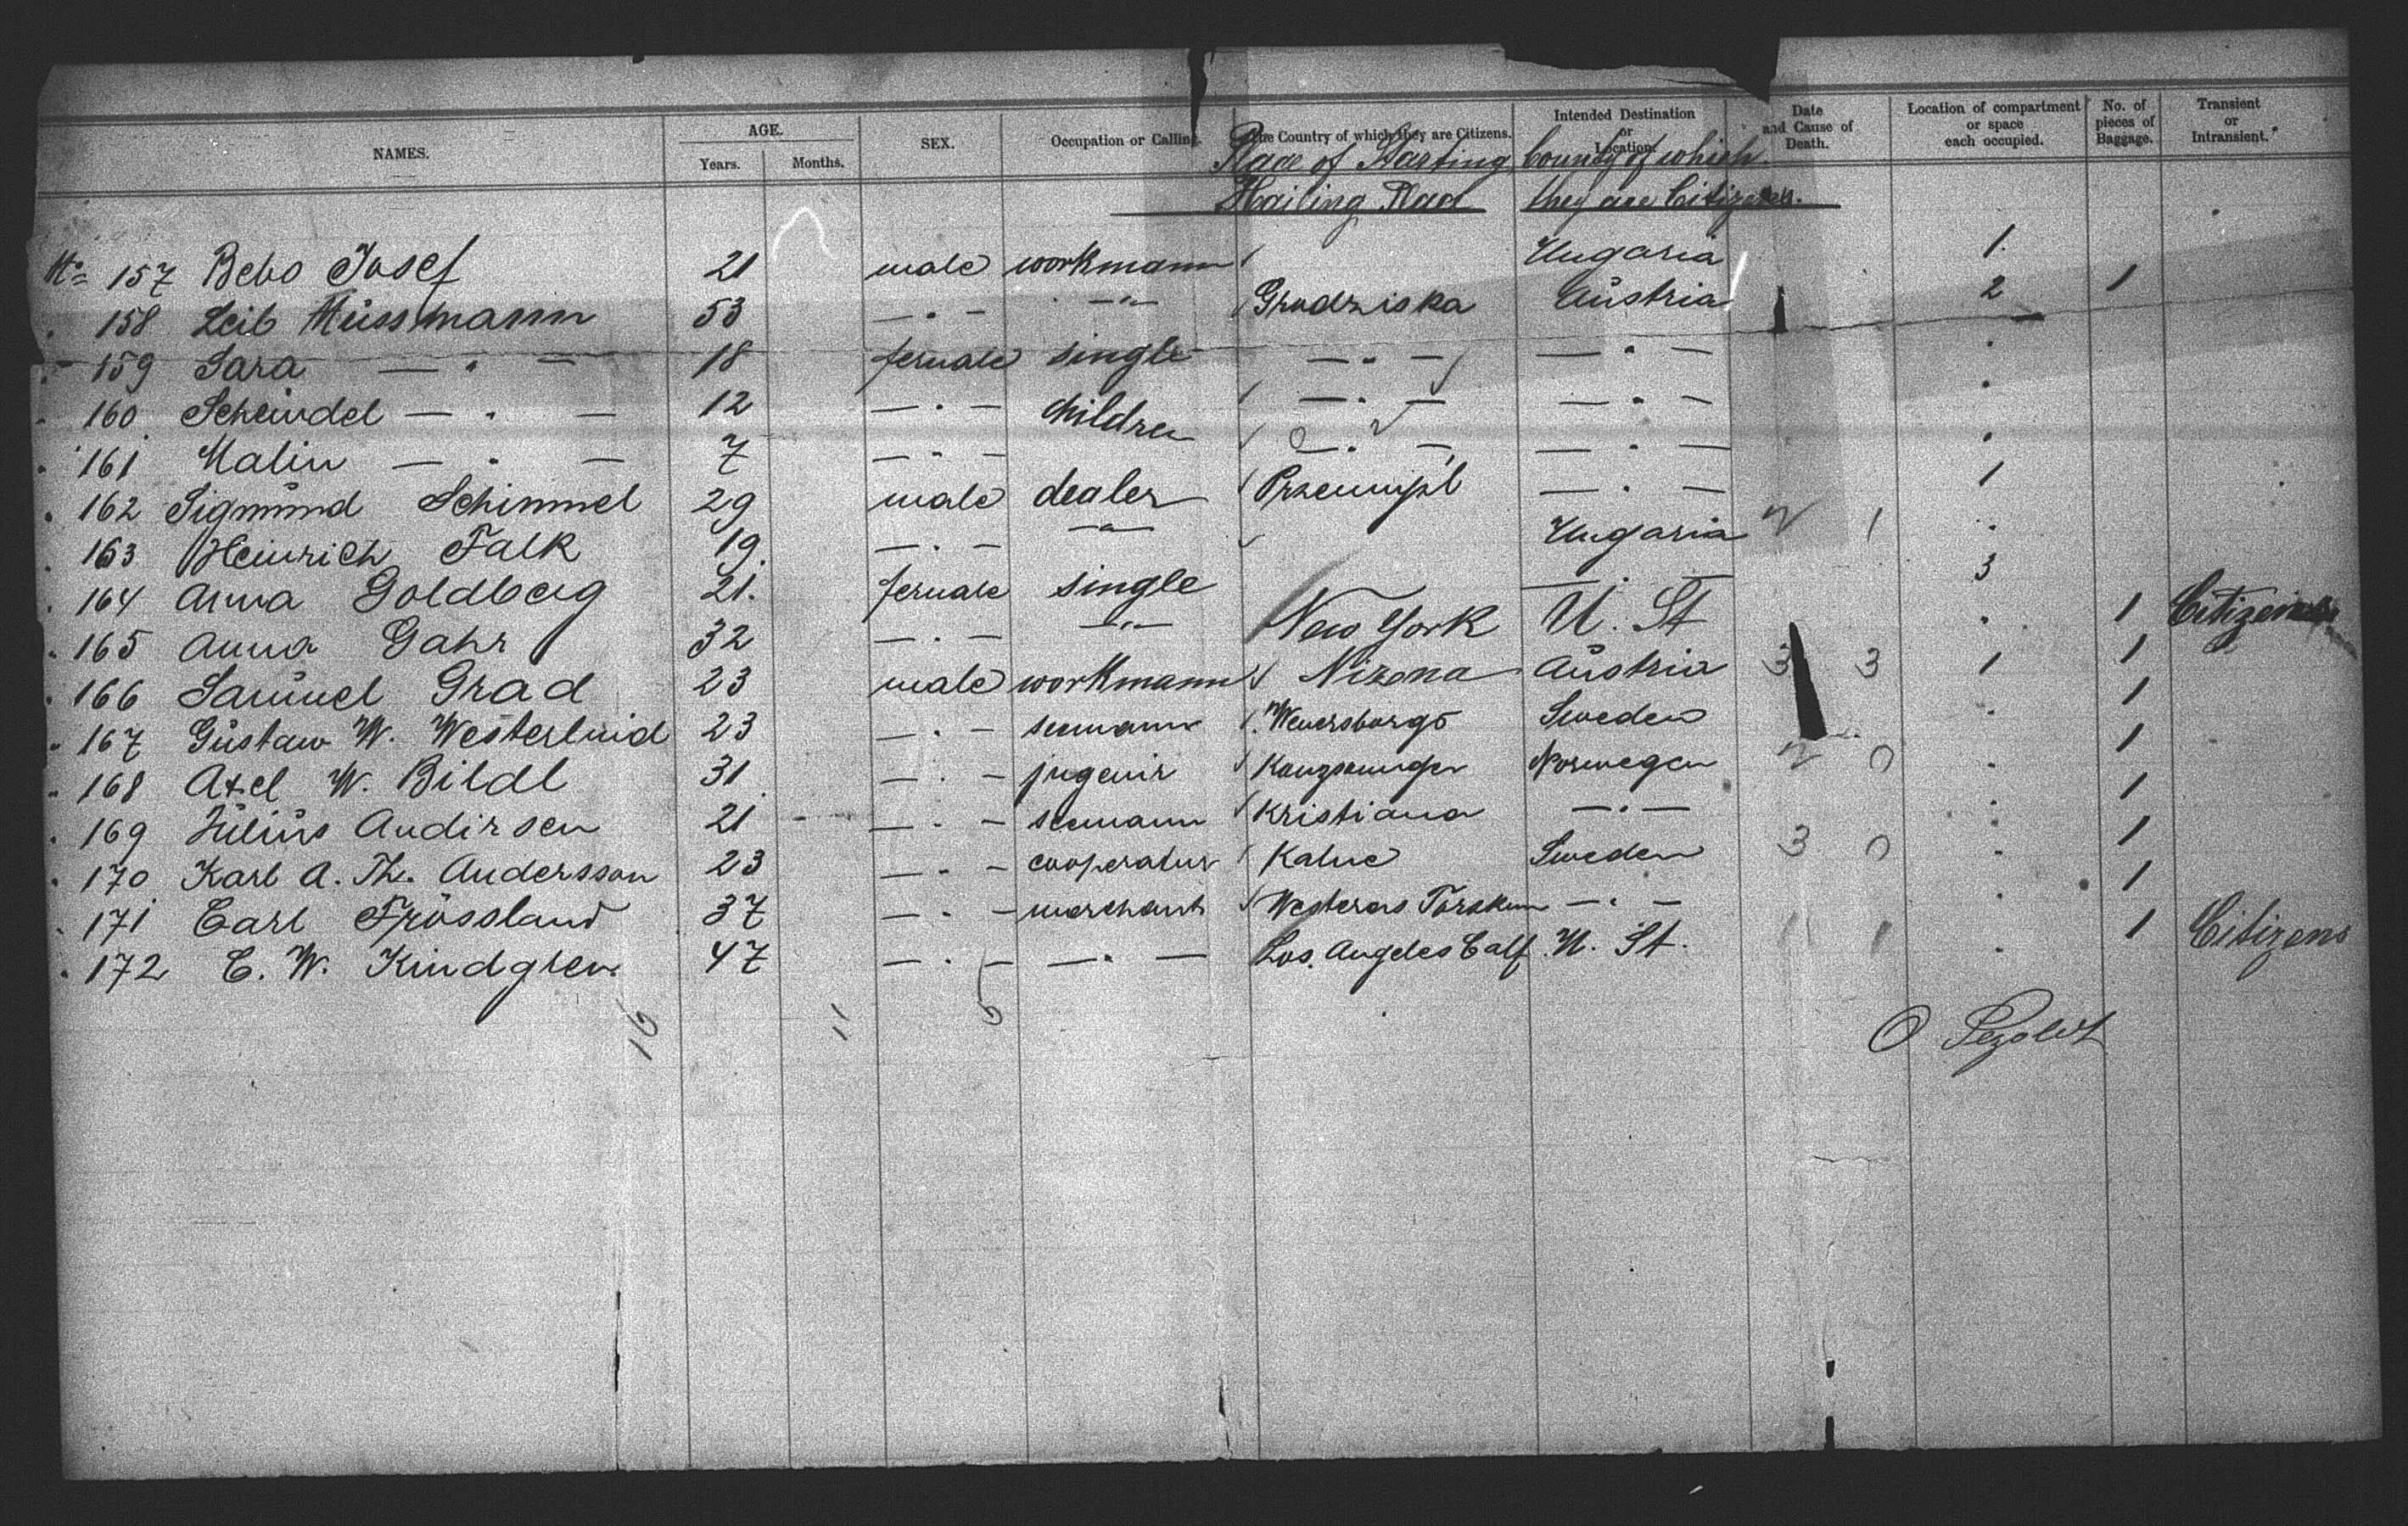 NAMES. AGE. Years. Months. SEX. Occupation or Calling. The Country of which they are Citizens. Intended Destination or Location. Date and Cause of Death. Location of compartment or space each occupied. No. of pieces of Baggage. Transient or Intransient.
Place of Starting County of which
Hailing Plad they are Citizen.
No 157 Bebo Josef 21 male workmann Ungaria 1.
" 158 Leib Müssmann 53 — " — — " — Grodziska Austria 2 1
" 159 Sara — " — 18 female single — " — — " — "
" 160 Scheindel — " — 12 — " — children — " — — " — "
" 161 Malin — " — 7 — " — — " — — " — "
" 162 Sigmünd Schimmel 29 male dealer Przemysl — " — 1
" 163 Heinrich Falk 19. — " — — " — Ungaria 2 1 "
" 164 Anna Goldberg 21. female single — " — 3
" 165 Anna Gahr 32 — " — — " — New York U. St " 1 Citizens
" 166 Samuel Grad 23 male workmann Nizona Aüstria 3 3 1 1
" 167 Güstaw W. Westerlund 23 — " — seemann Wenersborgs Sweden " 1
" 168 Axel W. Bildl 31 — " — jngenir Norwegen 2 0 " 1
" 169 Jülius Andirsen 21 — " — seemann Kristiana — " — " 1
" 170 Karl A. Th. Andersson 23 — " — cooperatur Kalue Sweden 3 0 " 1
" 171 Carl Frössland 37 — " — merchant Westeras — " — " 1
" 172 C. W. Kindgren 47 — " — — " — Los. Angeles Calf. U. St. 1 1 " 1 Citizens
16 11 5